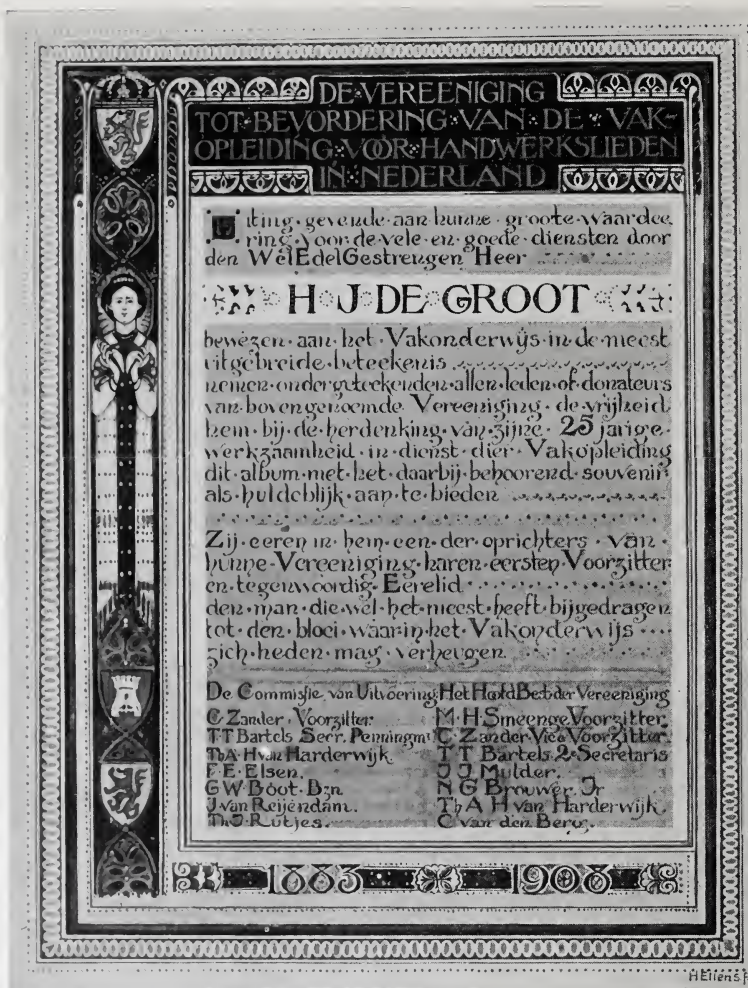 DE VEREENIGING
TOT BEVORDERING VAN DE VAK-
OPLEIDING VOOR HANDWERKSLIEDEN
IN NEDERLAND
Uiting gevende aan hunne groote waardee
ring voor de vele en goede diensten door
den WelEdelGestrengen Heer
H J DE GROOT
bewezen aan het Vakonderwijs in de meest
uitgebreide beteekenis
nemen ondergeteekenden allen leden of donateurs
van bovengenoemde Vereeniging de vrijheid
hem bij de herdenking van zijne 25 jarige
werkzaamheid in dienst dier Vakopleiding
dit album met het daarbij behoorend souvenir
als huldeblijk aan te bieden
Zij eeren in hem een der oprichters van
hunne Vereeniging haren eersten Voorzitter
en tegenwoordig Eerelid
den man die wel het meest heeft bijgedragen
tot den bloei waarin het Vakonderwijs
zich heden mag verheugen
De Commissie van Uitvoering Het Hoofd Best der Vereeniging
C. Zander. Voorzitter. M. H. Smeenge Voorzitter.
T T Bartels Secr. Penningmr C. Zander Vice Voorzitter.
Th A. H van Harderwijk. T T Bartels 2e Secretaris
F. E. Elsen. J J Mulder.
G W Boot Bzn N G Brouwer Jr
J. van Reijendam. Th A H van Harderwijk.
Th J. Rutjes. C van den Berg.
1883 1908
H Ellens f